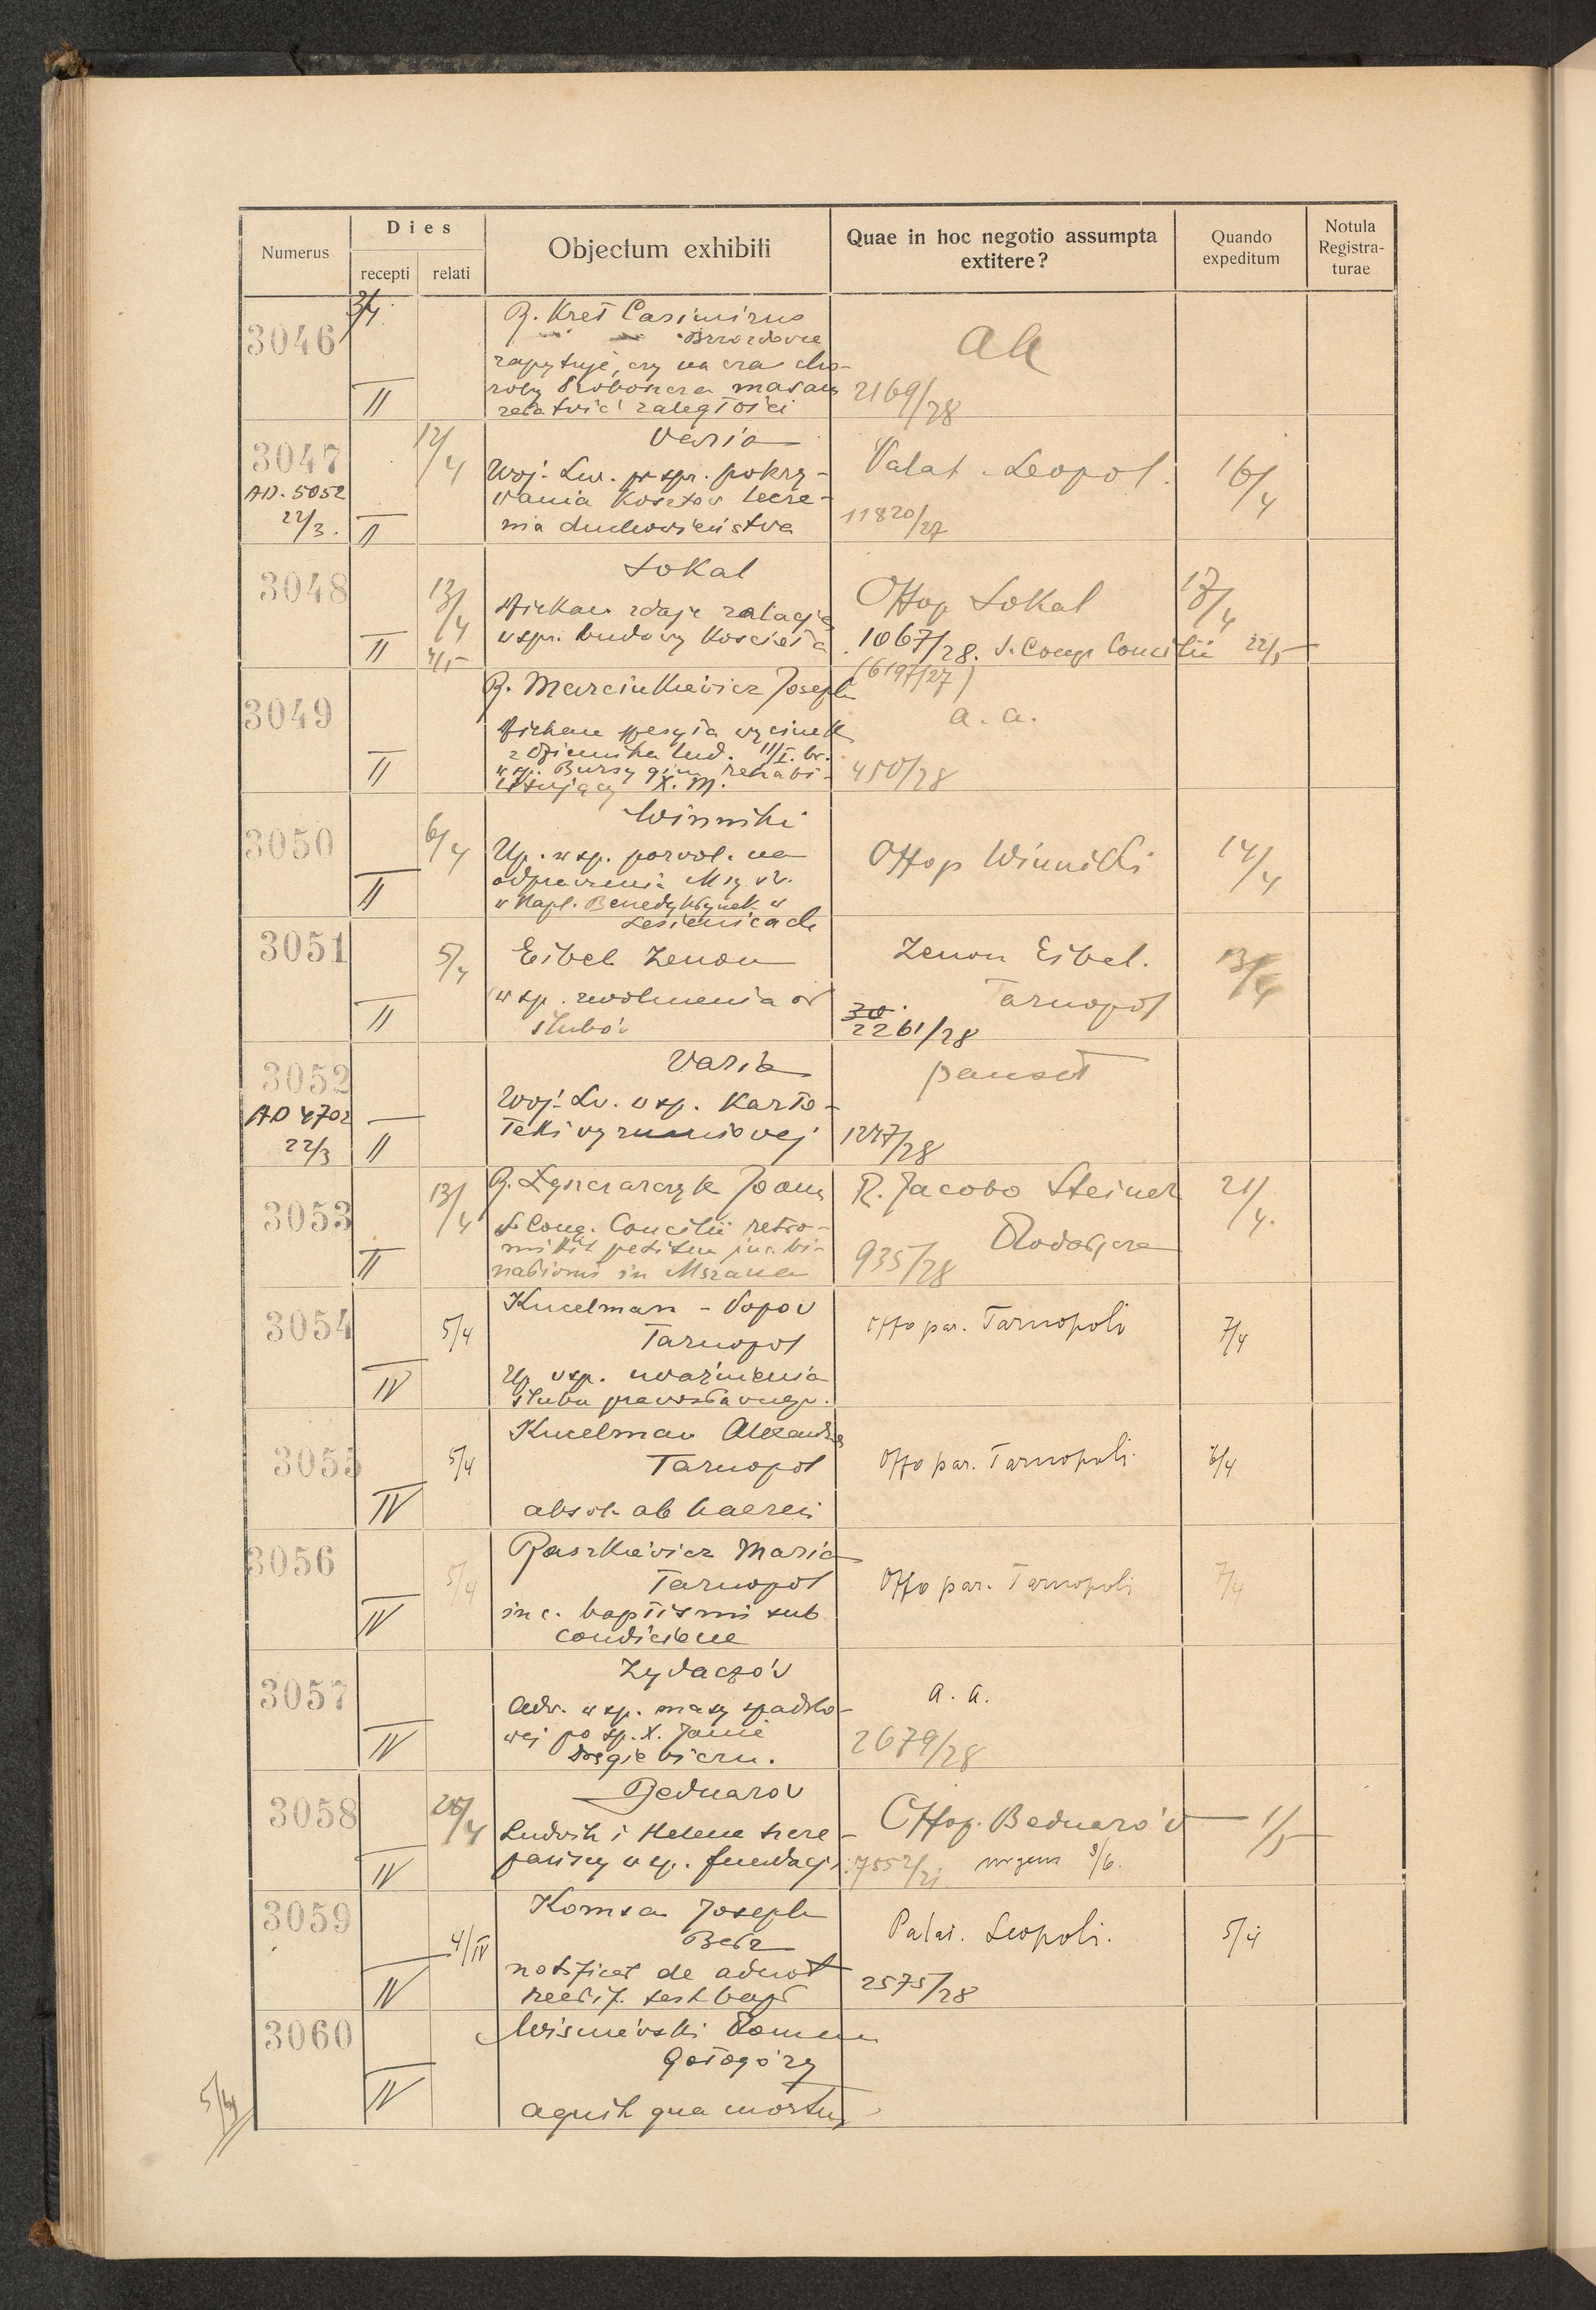 Numerus
Dies
recepti relati
Objectum exhibiti
Quae in hoc negotio assumpta extitere?
Quando expeditum
Notula Registraturae
3046
3/4
II
R. Kret Casimirus
zapytuje, czy na czas cho-
roby Proboszcza
załatwić zaległości
2169/28
3047
AD. 5052
22/3.
II
12/4
Varia
Woj. Lw. w spr. pokry-
wania kosztów lecze-
nia duchowieństwa
Palat. Leopol.
11820/27
16/4
3048
II
13/4
4/5
Sokal
Dziekan zdaje relację
w spr. budowy kościoła
Offop Sokal
1067/28. S. Congr Concilii 22/5
(6197/27)
3049
II
R. Marcinkiewicz Joseph
Dziekan wycinek
z Dziennika Lud. 11/I. br.
w sp. Bursy gim. rehabi-
litujący X. M.
a. a.
450/28
3050
II
6/4
Winniki
Up. w sp. pozwol. na
odprawienie Mszy św.
w kapl. Benedyktynek w
Lesienicach
Offop Winniki
14/4
3051
II
5/4
Eibel Zenon
w sp. zwolnienia od
ślubów
Zenon Eibel.
Tarnopol
2261/28
13/4
3052
AD 4702
22/3
II
Varia
Woj. Lw. w sp. karto-
teki wyznaniowej
1247/28
3053
II
13/4
R. Łyszczarczyk Joan
S. Cong. Concilii retro-
mittit petitum inc. bi-
nationis in Mszana
R. Jacobo Steiner
935/28
21/4.
3054
IV
5/4
Kucelman - Popow
Tarnopol
Up w sp. uważnienia
ślubu prawosławnego.
Offo par. Tarnopoli
7/4
3055
IV
5/4
Kucelman
Tarnopol
absol. ab haeresi
Offo par. Tarnopoli.
3056
IV
5/4
Paszkiewicz Maria
Tarnopol
inc. baptismi sub
condicione
Offo par. Tarnopoli
7/4
3057
IV
Żydaczów
Adw. w sp. masy spadko-
wej po śp. X. Janie
a. a.
2679/28
3058
IV
Bednarów
Ludwik i Helena Szcze-
pańscy w sp. fundacji
Offop. Bednarów
urgens 9/6.
1/5
3059
IV
4/IV
Komsa Joseph
Bełz
notificat de adnot
rectif.
Palat. Leopoli.
2575/28
5/4
3060
IV
Wiśniewski
Gołogóry
agnit qua mortuus